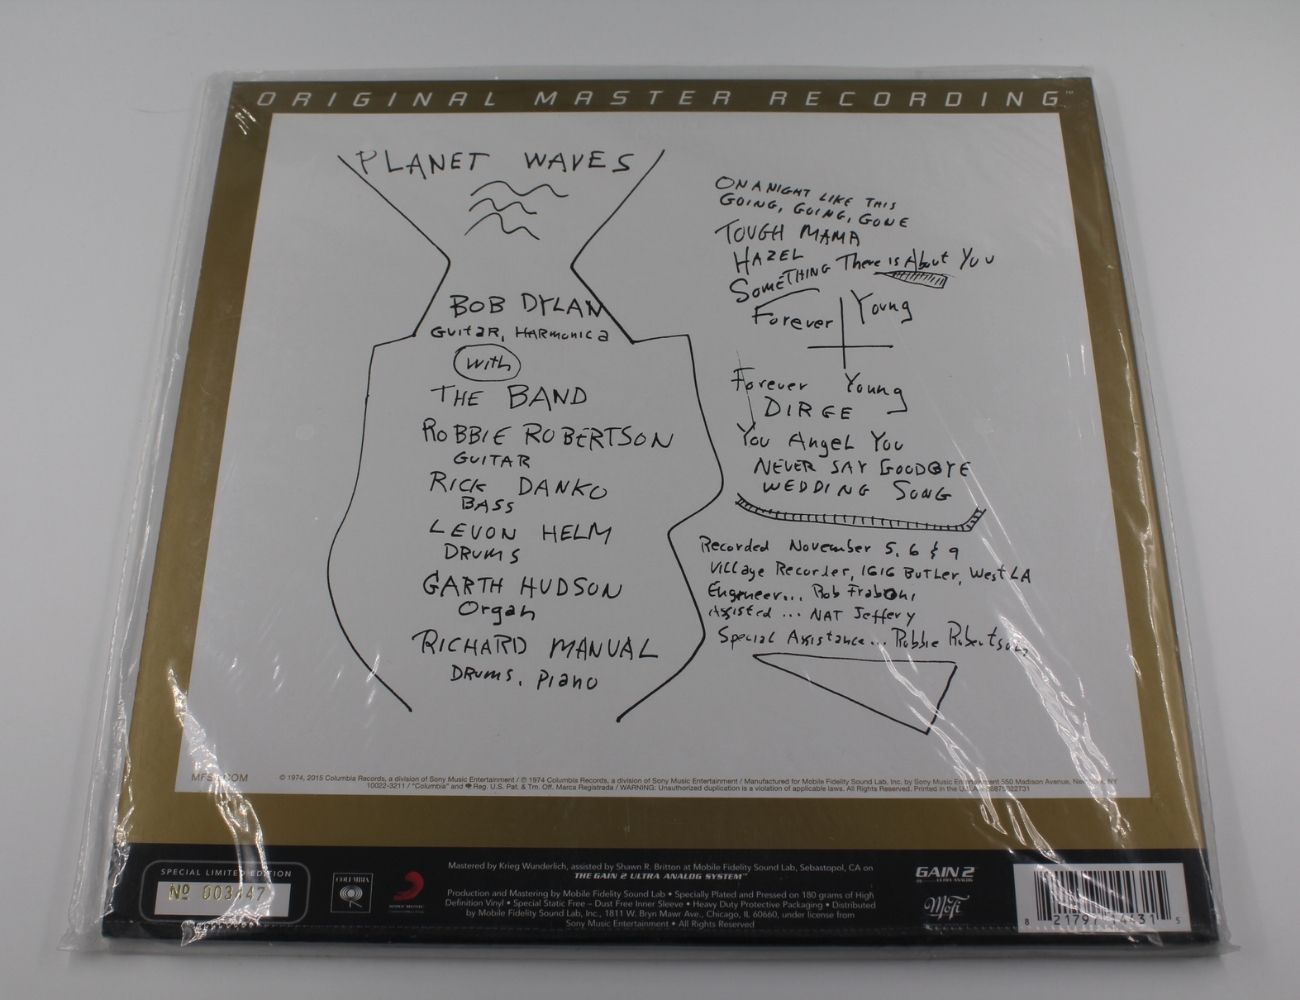 ORIGINAL MASTER RECORDING™
PLANET WAVES
BOB DYLAN
GUITAR, HARMONICA
With
THE BAND
ROBBIE ROBERTSON
GUITAR
RICK DANKO
BASS
LEVON HELM
DRUMS
GARTH HUDSON
Organ
RICHARD MANUAL
DRUMS, PIANO
ON A NIGHT LIKE THIS
GOING, GOING, GONE
TOUGH MAMA
HAZEL
SOMETHING There is About You
Forever Young
Forever Young
DIRGE
You Angel You
NEVER SAY GOODBYE
WEDDING SONG
Recorded November 5, 6 & 9
Village Recorder, 1616 Butler, West LA
Engineer... Rob Fraboni
Assisted ... NAT Jeffery
Special Assistance... Robbie Robertson
© 1974, 2015 Columbia Records, a division of Sony Music Entertainment / ℗ 1974 Columbia Records, a division of Sony Music Entertainment / Manufactured for Mobile Fidelity Sound Lab, Inc. by Sony Music Entertainment 550 Madison Avenue, NY
10022-3211 / "Columbia" and Reg. U.S. Pat. & Tm. Off. Marca Registrada / WARNING: Unauthorized duplication is a violation of applicable laws. All Rights Reserved. Printed in the U.S.A.
SPECIAL LIMITED EDITION
Nº
COLUMBIA
SONY MUSIC
Mastered by Krieg Wunderlich, assisted by Shawn R. Britton at Mobile Fidelity Sound Lab, Sebastopol, CA on
THE GAIN 2 ULTRA ANALOG SYSTEM™
Production and Mastering by Mobile Fidelity Sound Lab • Specially Plated and Pressed on 180 grams of High
Definition Vinyl • Special Static Free – Dust Free Inner Sleeve • Heavy Duty Protective Packaging • Distributed
by Mobile Fidelity Sound Lab, Inc., 1811 W. Bryn Mawr Ave., Chicago, IL 60660, under license from
Sony Music Entertainment • All Rights Reserved
GAIN 2
ULTRA ANALOG
MoFi